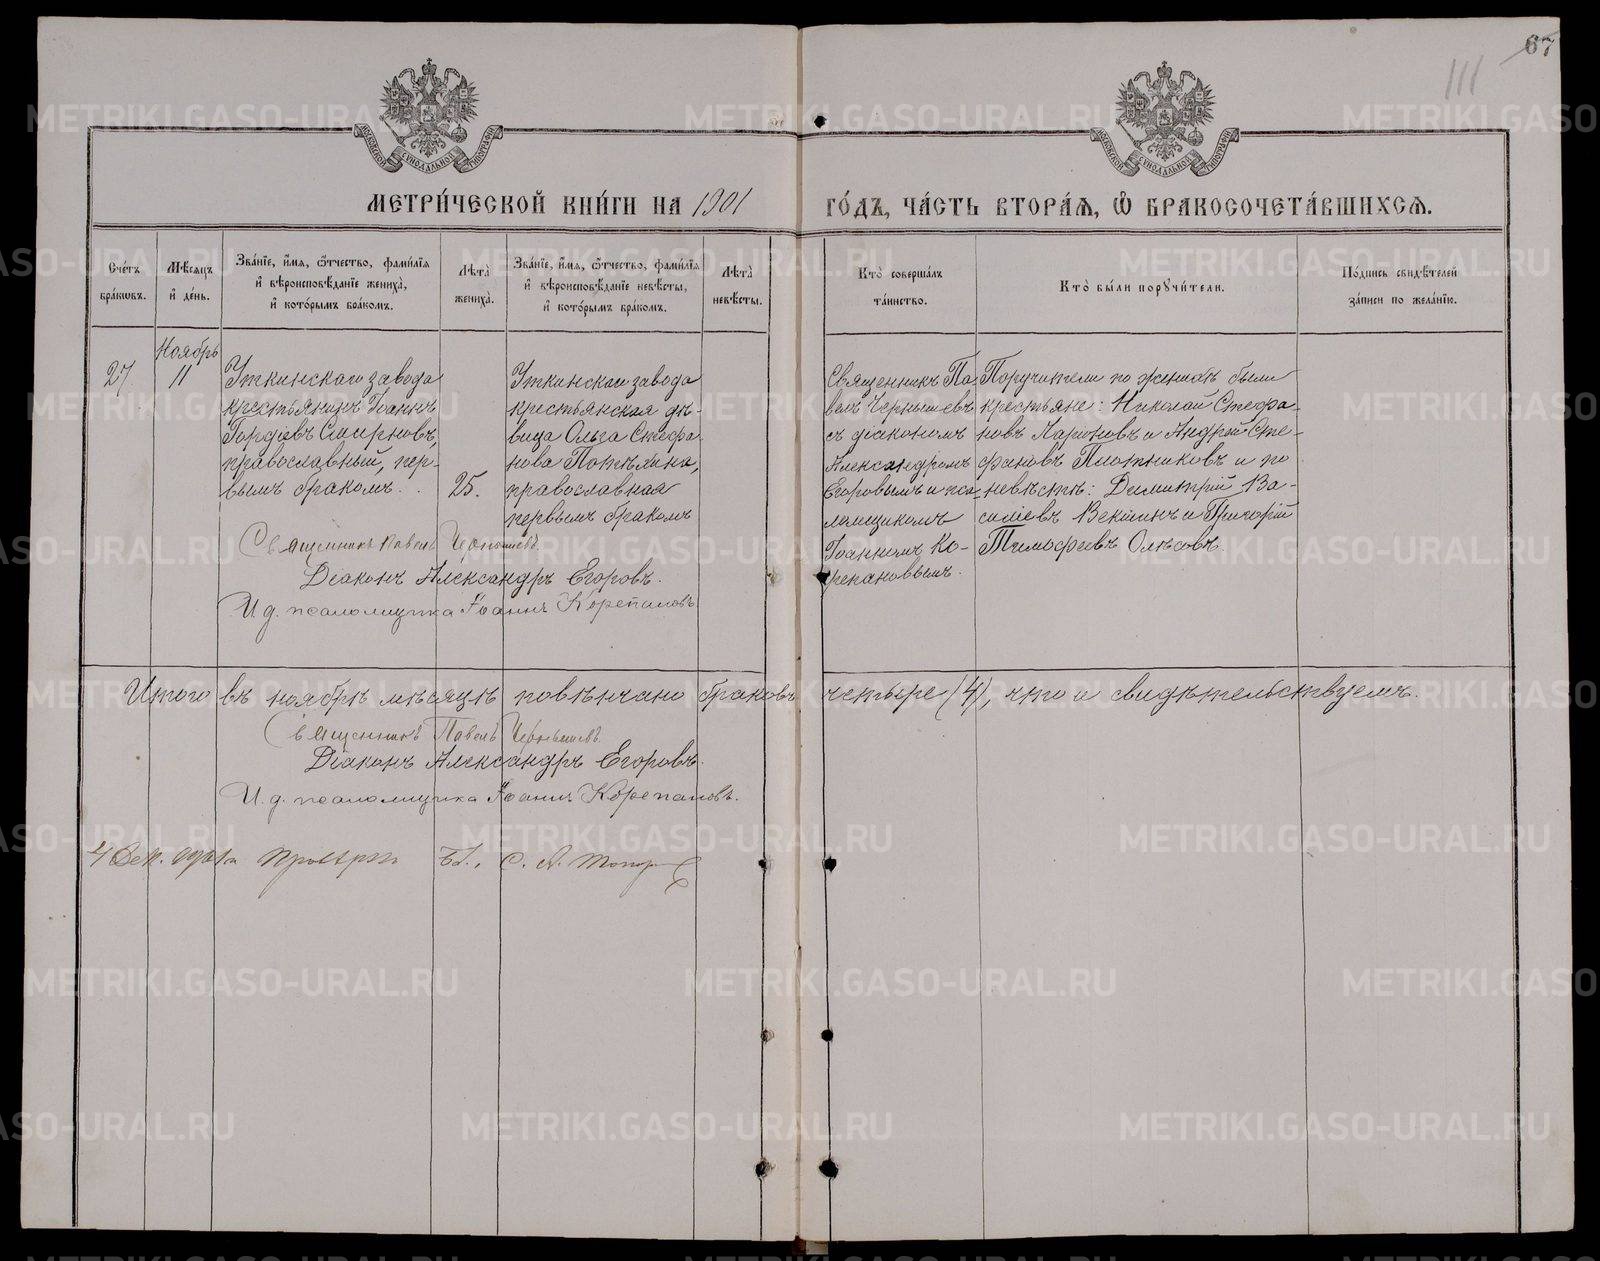 67
111
МОСКОВСКОЙ СѴНОДАЛЬНОЙ ТИПОГРАФІИ
МОСКОВСКОЙ СѴНОДАЛЬНОЙ ТИПОГРАФІИ
МЕТРИ́ЧЕСКОЙ КНИ́ГИ НА 1901
ГО́ДЪ, ЧА́СТЬ ВТОРА́Ѧ, Ѡ҆ БРАКОСОЧЕТА́ВШИХСѦ.
Сче́тъ
бра́ковъ.
Мѣ́сяцъ
и҆ де́нь.
Зва́нїе, и҆́мя, ѻ҆́тчество, фами́лїя
и҆ вѣроисповѣ́данїе жениха̀,
и҆ кото́рымъ бра́комъ.
Лѣ́та̀
жениха̀.
Зва́нїе, и҆́мя, ѻ҆́тчество, фами́лїя
и҆ вѣроисповѣ́данїе невѣ́сты,
и҆ кото́рымъ бра́комъ.
Лѣ́та̀
невѣ́сты.
Кто̀ соверша́лъ
та́инство.
Кто̀ бы́ли порꙋчи́тели.
По́дпись свидѣ́телей
за́писи по жела́нїю.
27
Ноябрь
11
Уткинскаго завода
крестьянинъ Іоаннъ
Гордіевъ Смирновъ,
православный, пер-
вымъ бракомъ.
25.
Уткинскаго завода
крестьянская дѣ-
вица Ольга Стефа-
нова Потѣхина,
православная
первымъ бракомъ
Священникъ Па-
велъ Чернышевъ
съ діакономъ
Александромъ
Егоровымъ и пса-
ломщикомъ
Іоанномъ Ко-
репановымъ.
Поручители по женихѣ были
крестьяне: Николай Стефа-
новъ Ларіоновъ и Андрей Сте-
фановъ Плотниковъ и по
невѣстѣ: Димитрій Ва-
силіевъ Векшинъ и Григорій
Тимофеевъ Олѣсовъ.
Священникъ Павелъ Чернышевъ.
Діаконъ Александръ Егоровъ.
И. д. псаломщика Іоаннъ Корепановъ.
Итого въ ноябрѣ мѣсяцѣ повѣнчано браковъ четыре (4), что и свидѣтельствуемъ.
Священникъ Павелъ Чернышевъ.
Діаконъ Александръ Егоровъ.
И. д. псаломщика Іоаннъ Корепановъ.
4 Дек. 1901 г.
METRIKI.GASO-URAL.RU